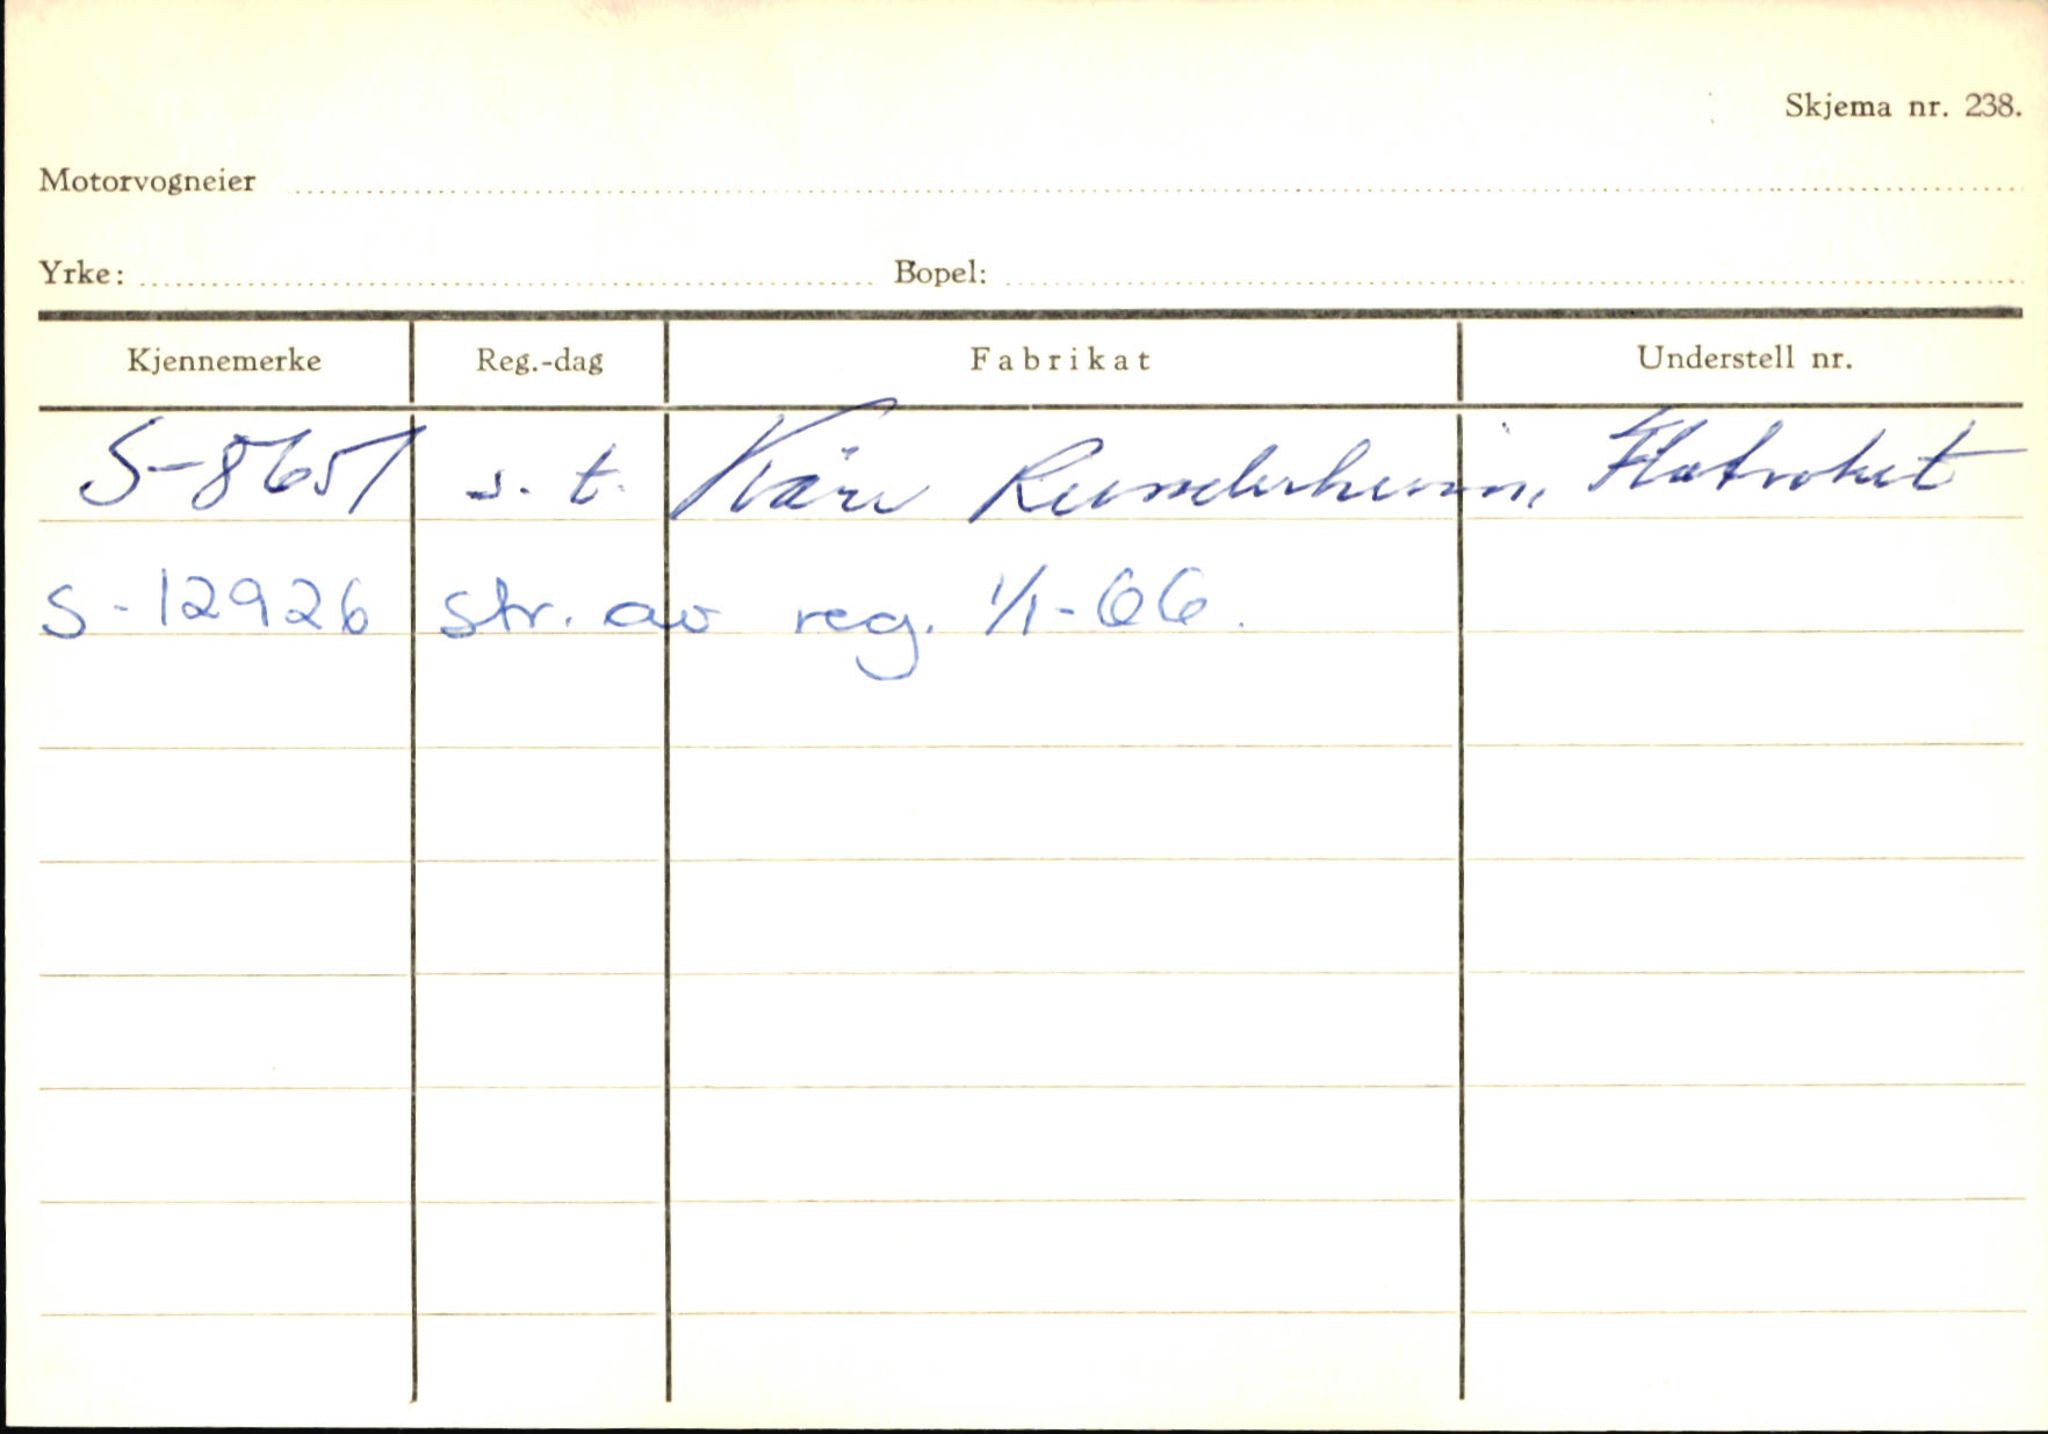 Skjema nr. 238.
Motorvogneier
Yrke: Bopel:
Kjennemerke Reg.-dag Fabrikat Understell nr.
S-8651 s. t. Kåre
S-12926 str. av reg. 1/1-66.